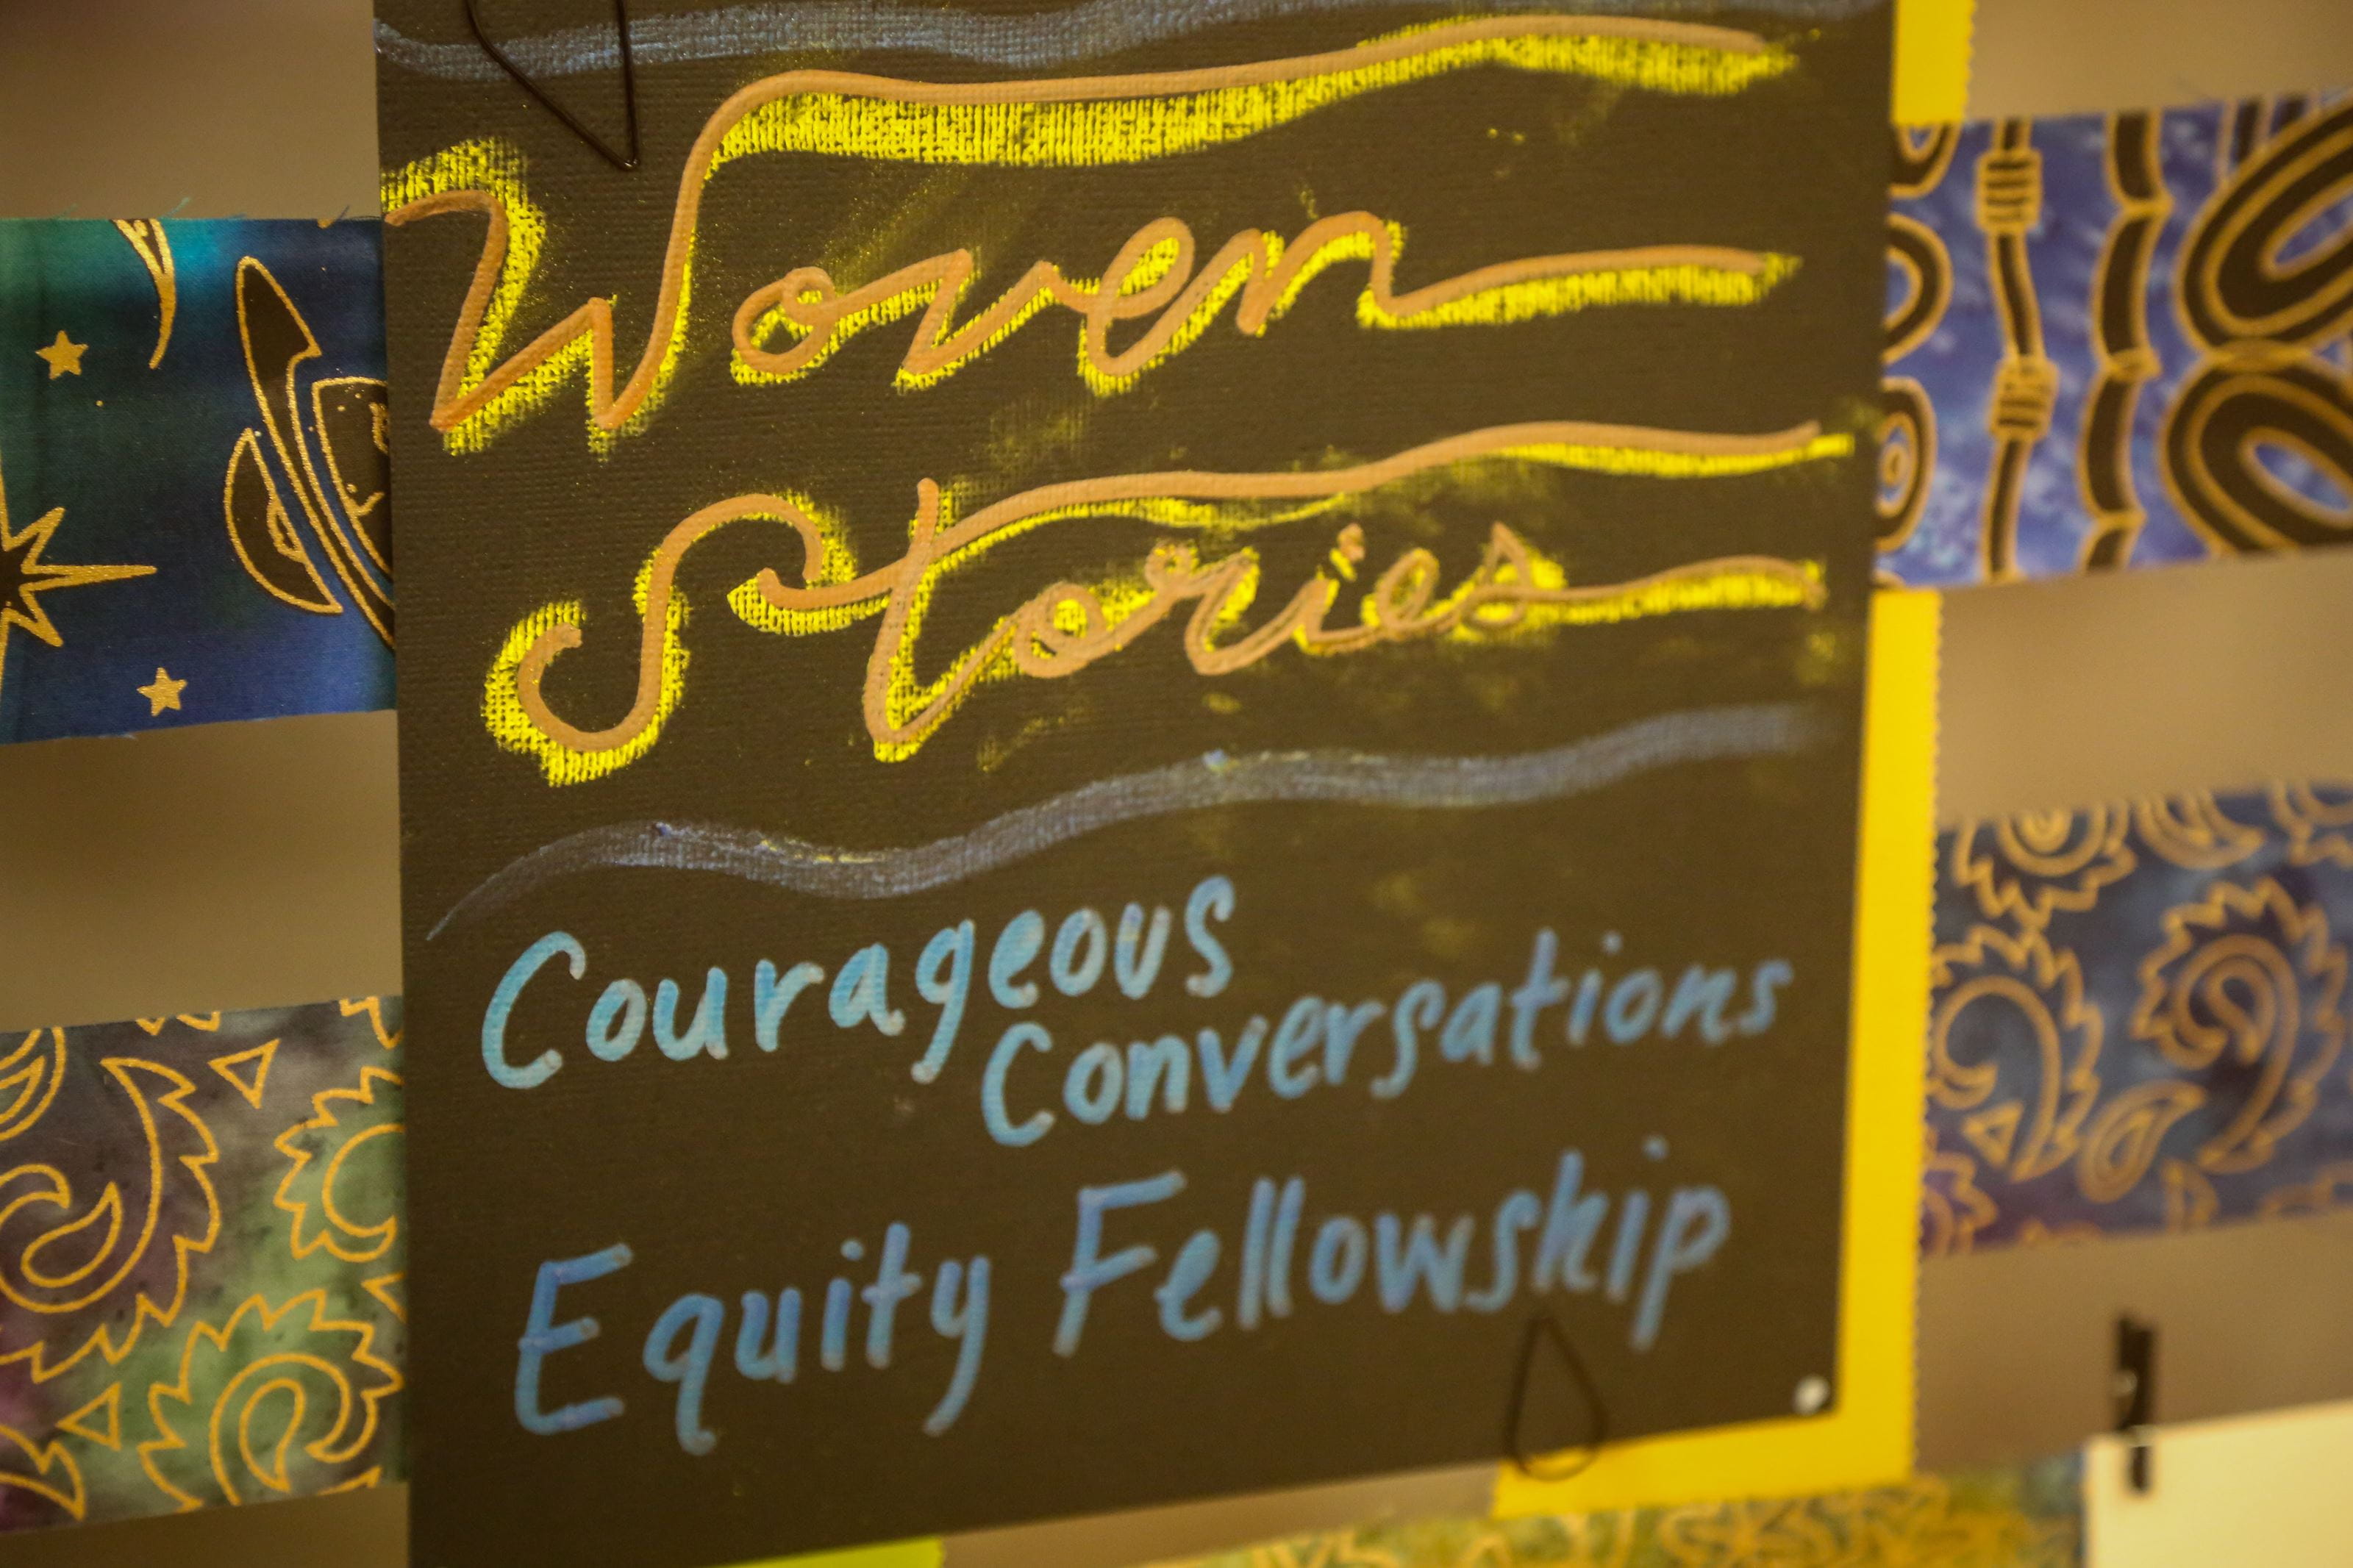 Woven
Stories
Courageous
Conversations
Equity Fellowship